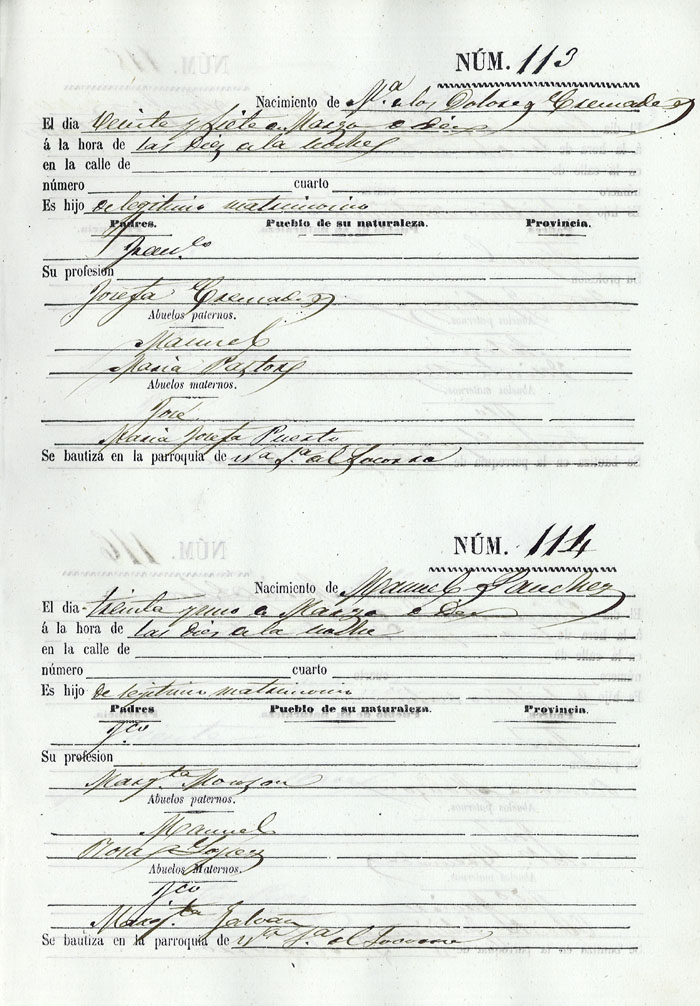 NÚM. 113
Nacimiento de Mª de los Dolores Cremades
El dia Veinte y siete de Marzo de
á la hora de las diez de la noche
en la calle de
número cuarto
Es hijo de legitimo matrimonio
Padres. Pueblo de su naturaleza. Provincia.
Franco
Su profesion
Josefa Cremades
Abuelos paternos.
Manuel
Maria Pastor
Abuelos maternos.
José
Maria Josefa Puerto
Se bautizá en la parroquia de Nª Sª del Socorro
NÚM. 114
Nacimiento de Manuel Sanchez
El dia treinta y uno de Marzo de
á la hora de las diez de la noche
en la calle de
número cuarto
Es hijo de legitimo matrimonio
Padres Pueblo de su naturaleza. Provincia.
Fco
Su profesion
Margta Monzon
Abuelos paternos.
Manuel
Rosa Lopez
Abuelos Maternos.
Fco
Margta Galvañ
Se bautizá en la parroquia de Nª Sª del Socorro